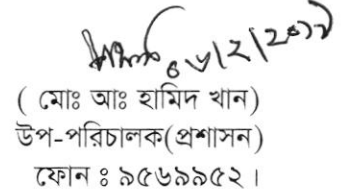 ( মোঃ আঃ হামিদ খান)
উপ-পরিচালক(প্রশাসন)
ফোন ঃ ৯৫৬৯৯৫২।